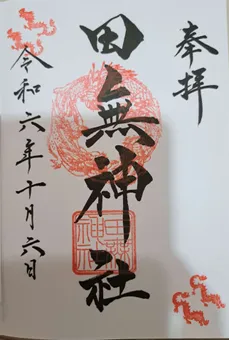 奉拝
田無神社
令和六年十月六日
田無神社